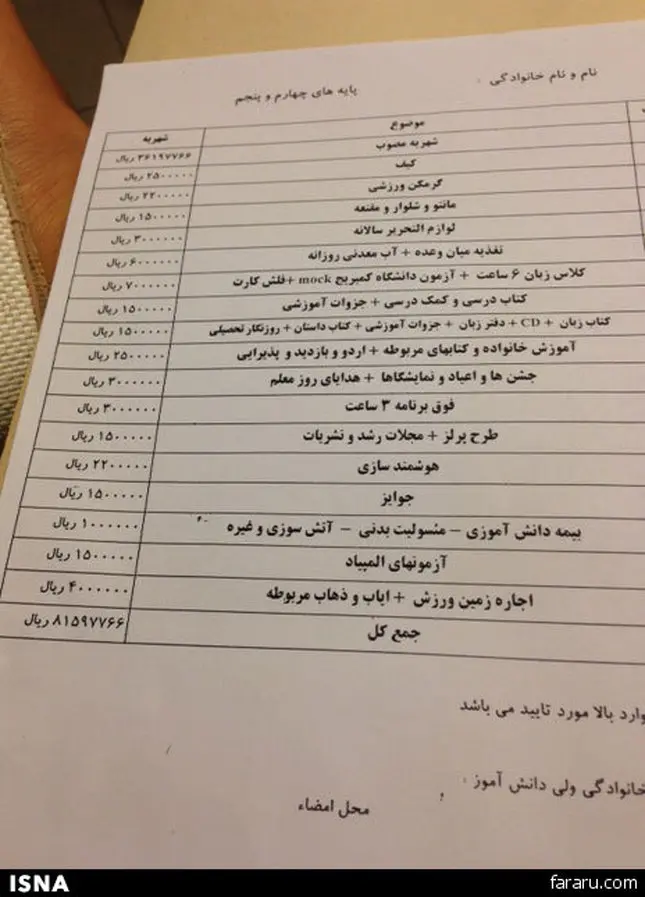 نام و نام خانوادگی :
پایه های چهارم و پنجم
موضوع شهریه
شهریه مصوب ۳۶۱۹۷۷۶۶ ریال
کیف ۲۵۰۰۰۰۰ ریال
گرمکن ورزشی ۲۲۰۰۰۰۰ ریال
مانتو و شلوار و مقنعه ۱۵۰۰۰۰۰ ریال
لوازم التحریر سالانه ۳۰۰۰۰۰۰ ریال
تغذیه میان وعده + آب معدنی روزانه ۶۰۰۰۰۰۰ ریال
کلاس زبان ۶ ساعت + آزمون دانشگاه کمبریج mock +فلش کارت ۷۰۰۰۰۰۰ ریال
کتاب درسی و کمک درسی + جزوات آموزشی ۱۵۰۰۰۰۰ ریال
کتاب زبان + CD + دفتر زبان + جزوات آموزشی + کتاب داستان + روزنگار تحصیلی ۱۵۰۰۰۰۰ ریال
آموزش خانواده و کتابهای مربوطه + اردو و بازدید و پذیرایی ۲۵۰۰۰۰۰ ریال
جشن ها و اعیاد و نمایشگاها + هدایای روز معلم ۳۰۰۰۰۰۰ ریال
فوق برنامه ۳ ساعت ۳۰۰۰۰۰۰ ریال
طرح پرلز + مجلات رشد و نشریات ۱۵۰۰۰۰۰ ریال
هوشمند سازی ۲۲۰۰۰۰۰ ریال
جوایز ۱۵۰۰۰۰۰ ریال
بیمه دانش آموزی – مئسولیت بدنی – آتش سوزی و غیره ۱۰۰۰۰۰۰ ریال
آزمونهای المپیاد ۱۵۰۰۰۰۰ ریال
اجاره زمین ورزش + ایاب و ذهاب مربوطه ۴۰۰۰۰۰۰ ریال
جمع کل ۸۱۵۹۷۷۶۶ ریال
وارد بالا مورد تایید می باشد
خانوادگی ولی دانش آموز :
محل امضاء
ISNA
fararu.com